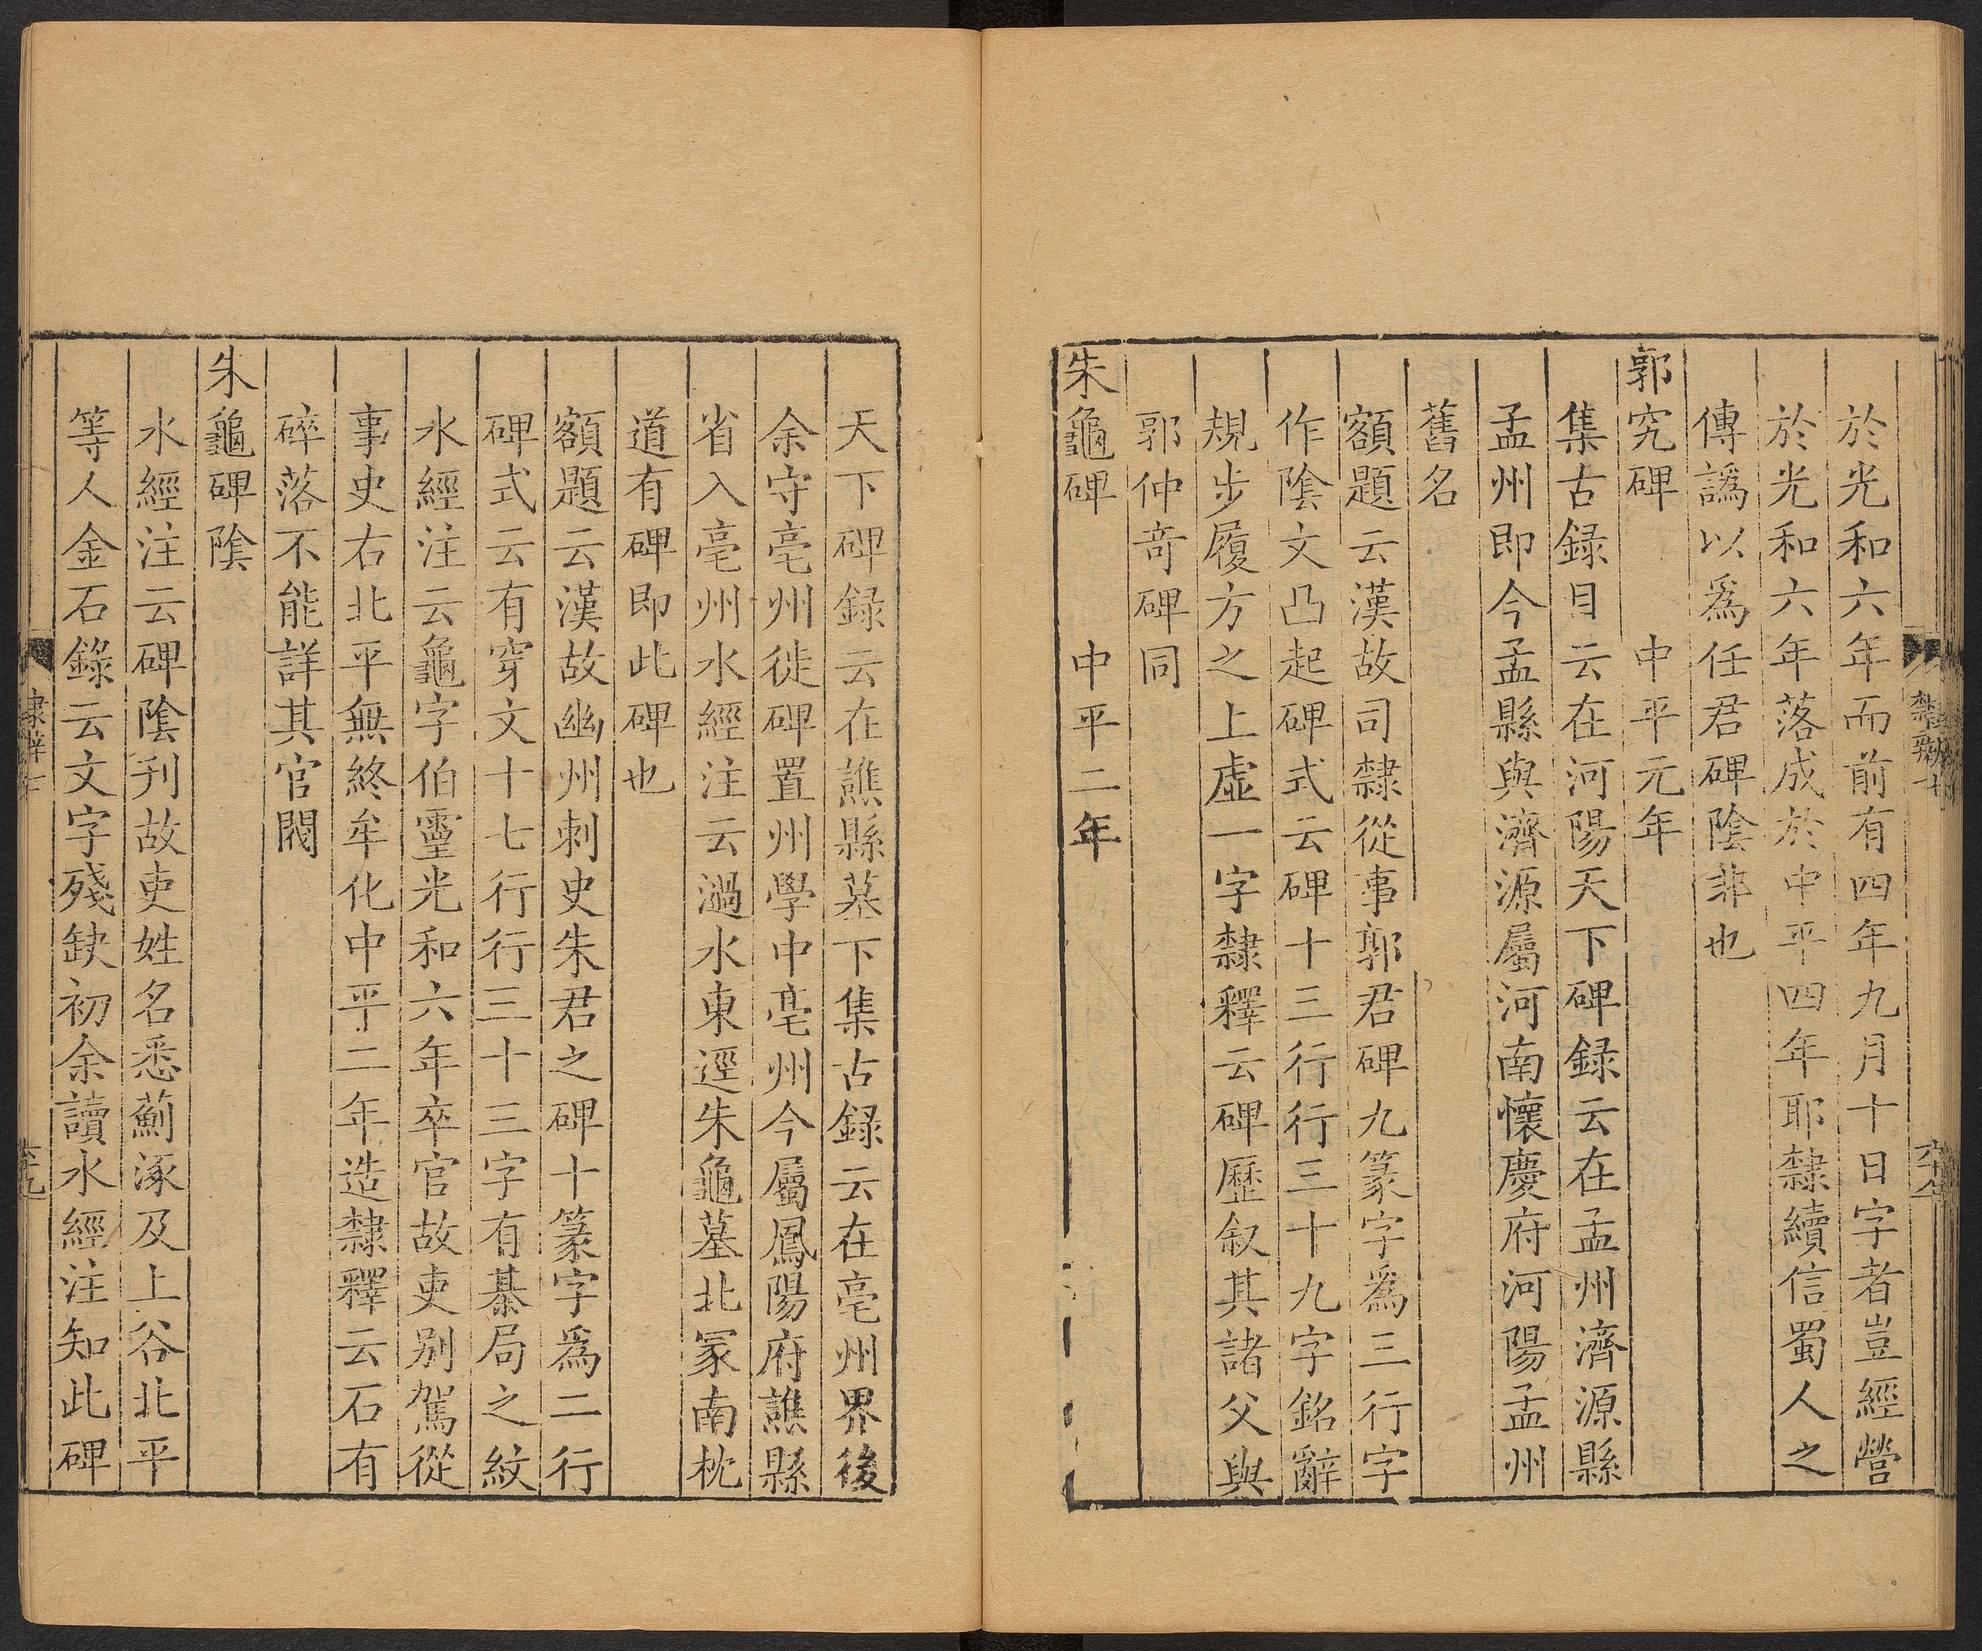 於光和六年而前有四年九月十日字者豈經營
於光和六年落成於中平四年耶隸續信蜀人之
傳譌以爲任君碑陰非也
郭究碑 中平元年
集古録目云在河陽天下碑録云在孟州濟源縣
孟州即今孟縣與濟源屬河南懷慶府河陽孟州
舊名
額題云漢故司隸從事郭君碑九篆字爲三行字
作陰文凸起碑式云碑十三行行三十九字銘辭
規步履方之上虛一字隸釋云碑歷叙其諸父與
郭仲奇碑同
朱龜碑 中平二年
天下碑録云在譙縣墓下集古録云在亳州界後
余守亳州徙碑置州學中亳州今屬鳳陽府譙縣
省入亳州水經注云濄水東逕朱龜墓北冢南枕
道有碑即此碑也
額題云漢故幽州刺史朱君之碑十篆字爲二行
碑式云有穿文十七行行三十三字有棊局之紋
水經注云龜字伯靈光和六年卒官故吏别駕從
事史右北平無終牟化中平二年造隸釋云石有
碎落不能詳其官閥
朱龜碑陰
水經注云碑陰刋故吏姓名悉薊涿及上谷北平
等人金石錄云文字殘缺初余讀水經注知此碑
隸辨七